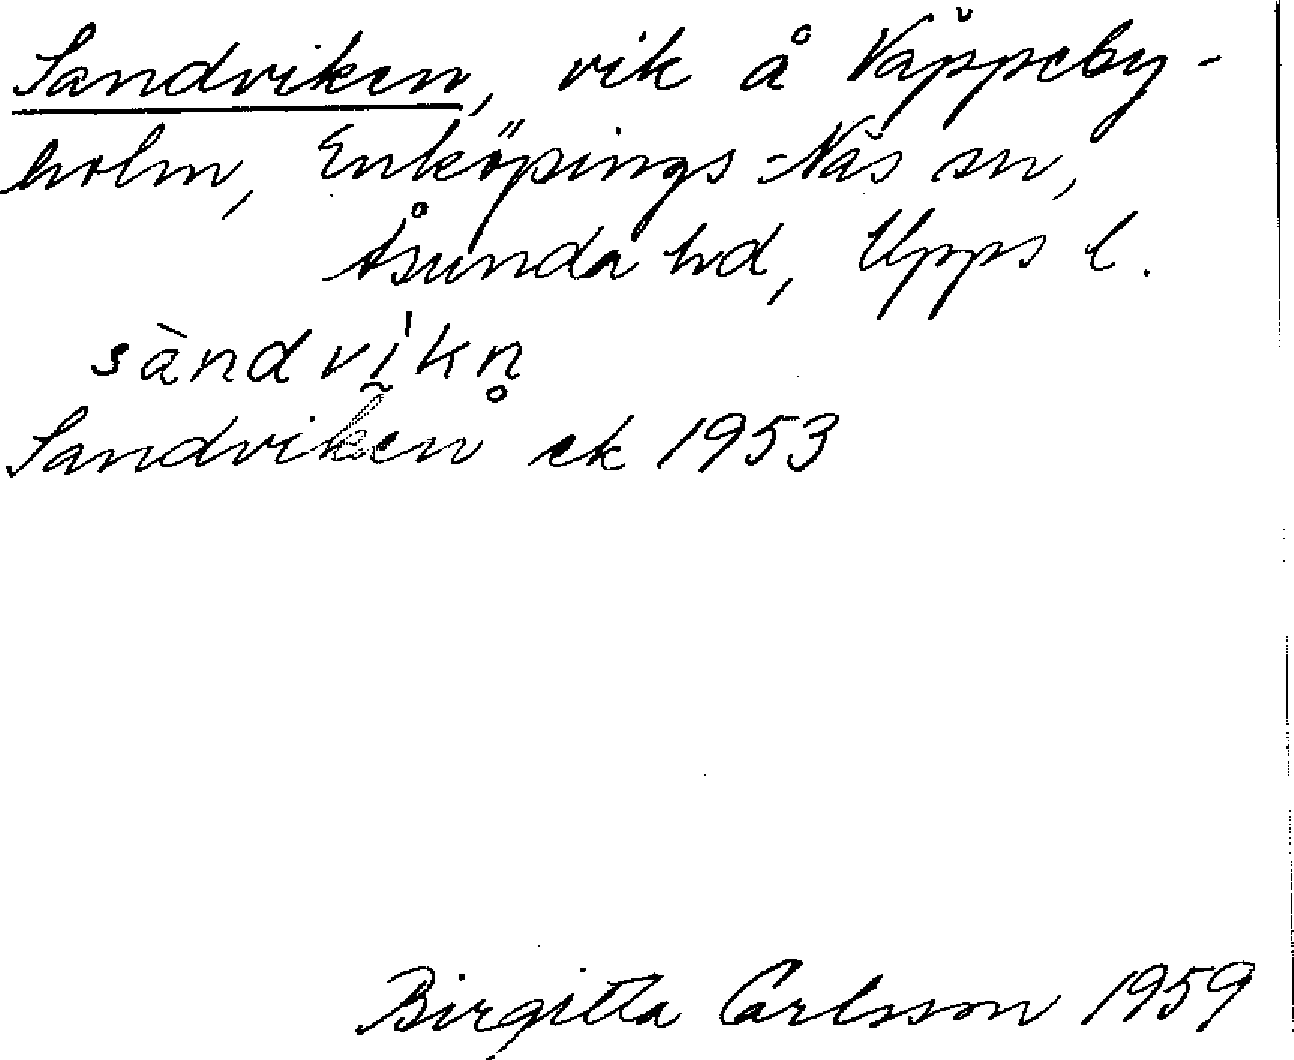 Sandviken, vik å Väppeby-
holm, Enköpings-Näs sn,
Åsunda hd, Upps l.
sàndvḭ̍kn̥
Sandviken ek 1953
Birgitta Carlsson 1959